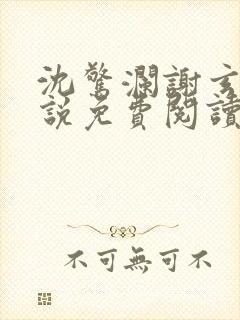 沈驚瀾謝玄
說免費閱讀
不可無可不